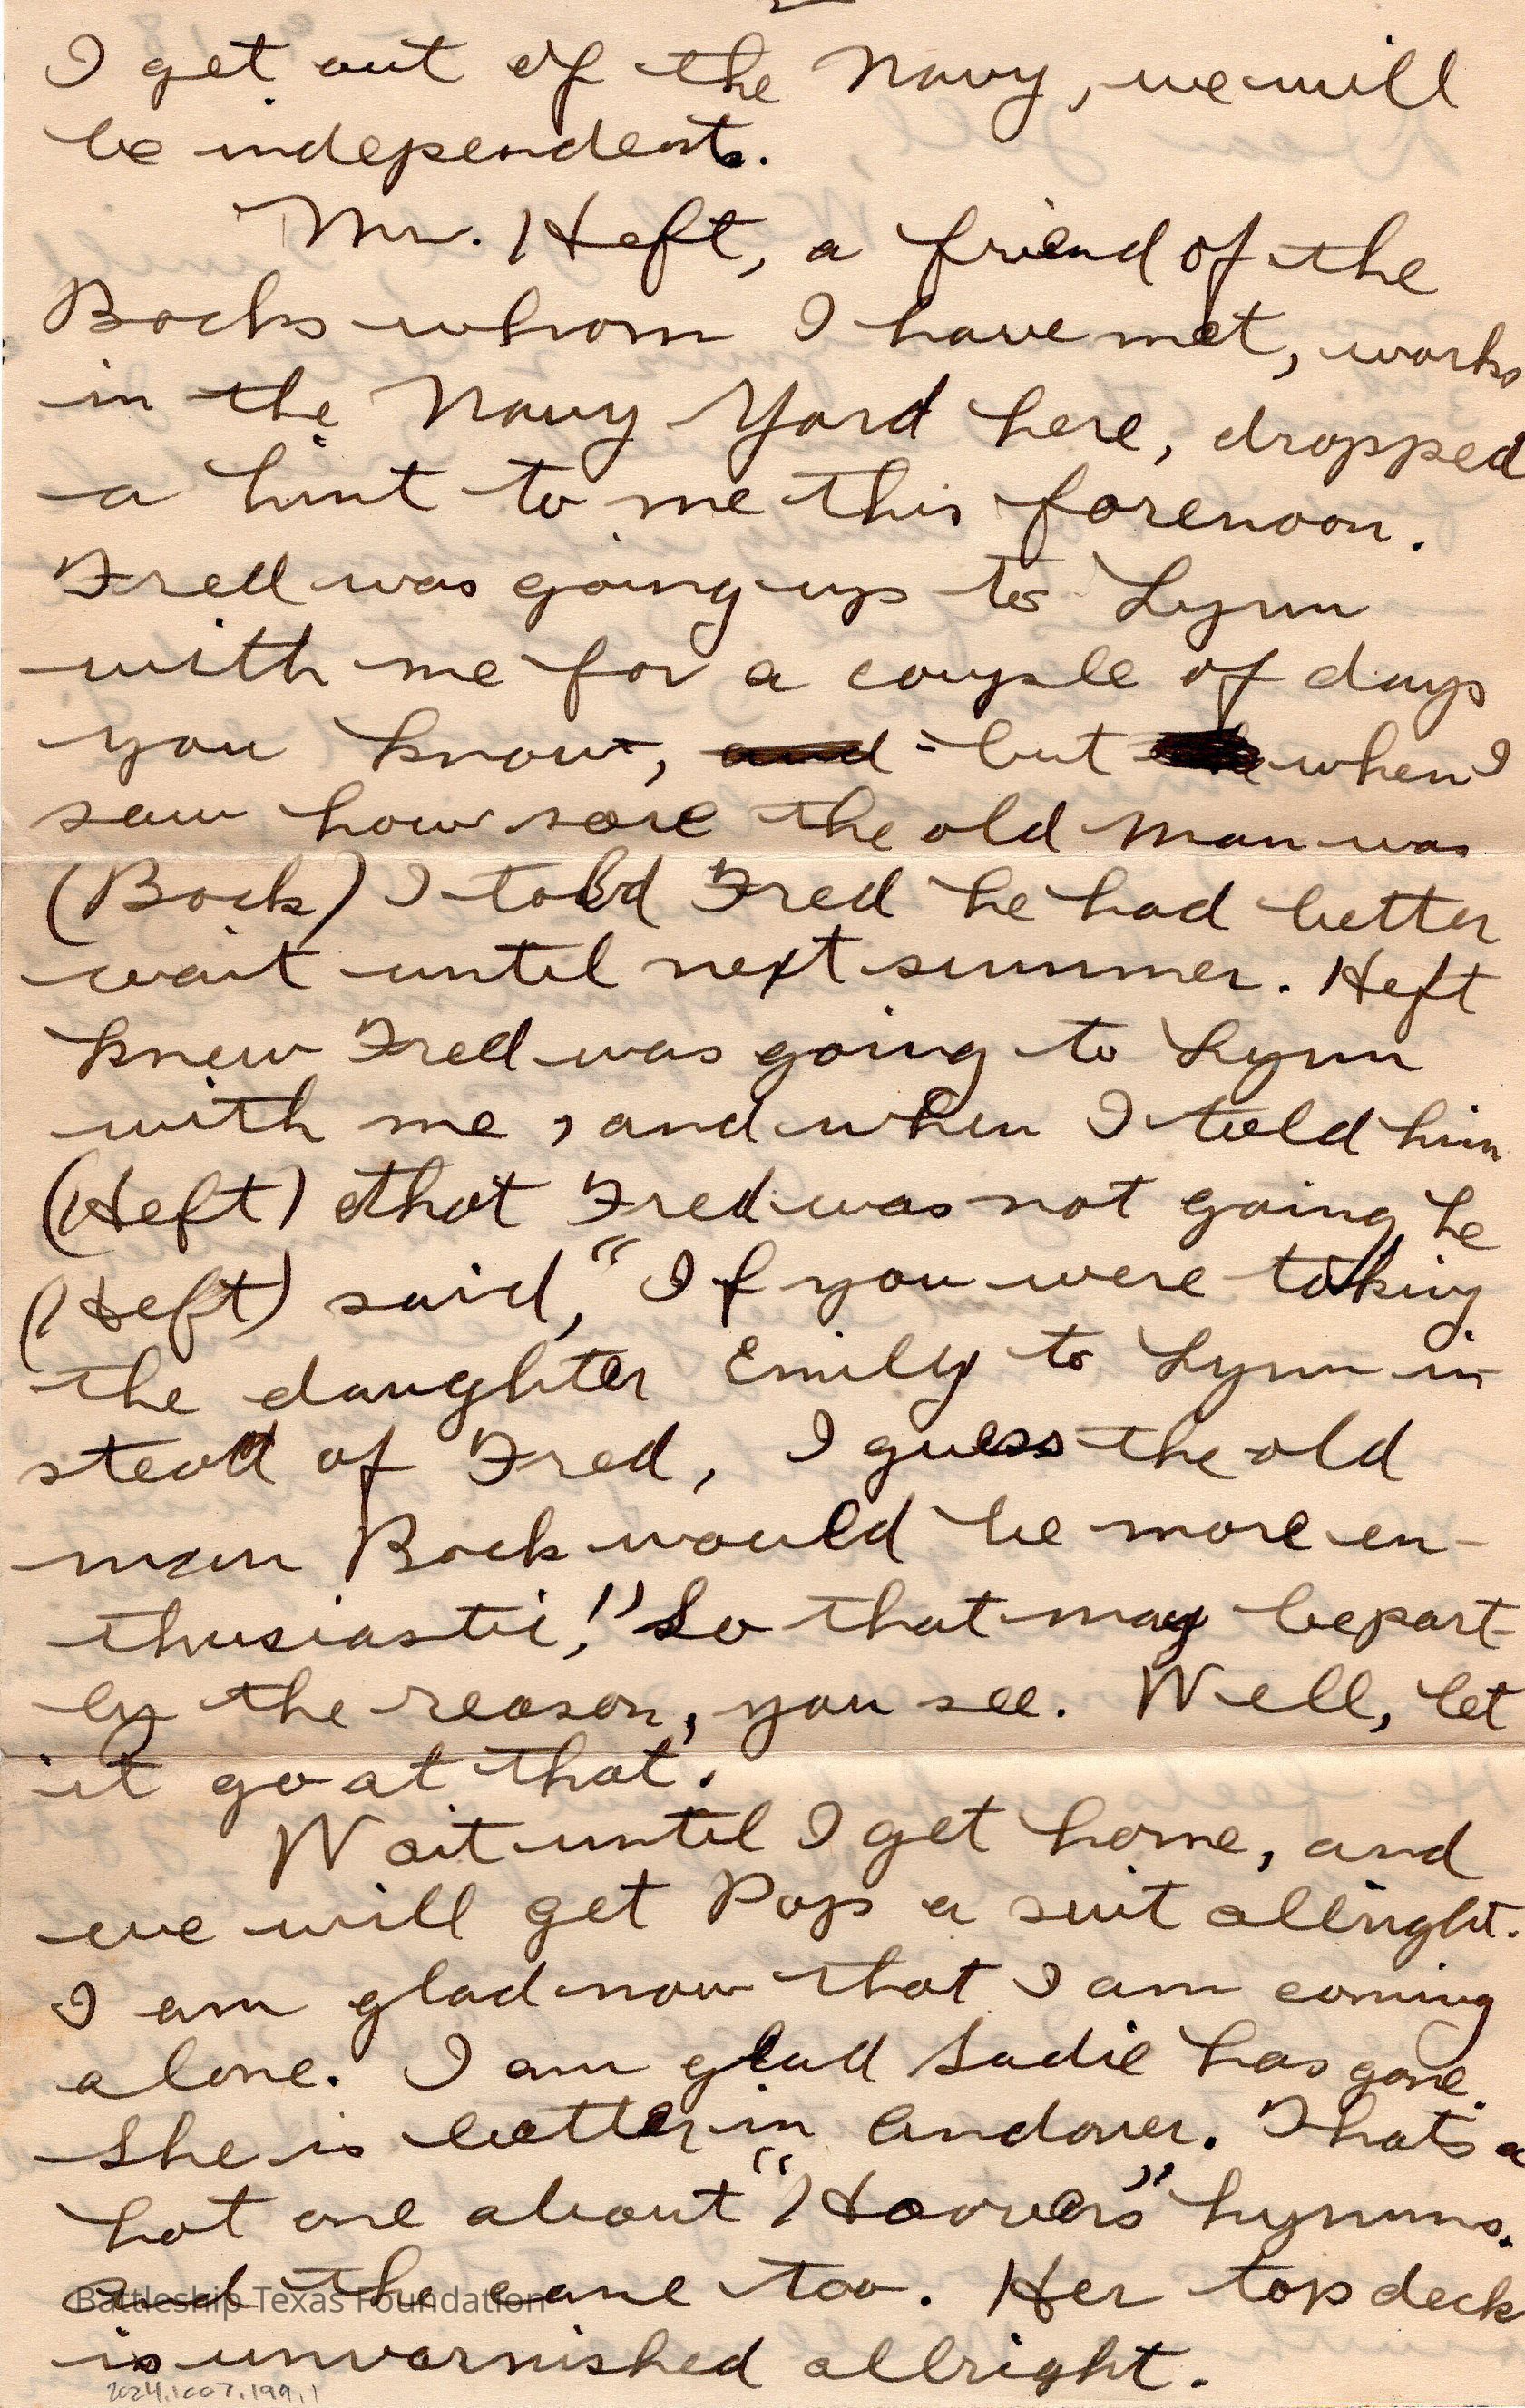 I get out of the Navy, we will
be independent.
Mr. Heft, a friend of the
Bocks whom I have met, works
in the Navy Yard here, dropped
a hint to me this forenoon.
Fred was going up to Lynn
with me for a couple of days
you know, and - but when I
saw how sore the old man was
(Bock) I told Fred he had better
wait until next summer. Heft
knew Fred was going to Lynn
with me, and when I told him
(Heft) that Fred was not going, he
(Heft) said, "If you were taking
the daughter Emily to Lynn in-
stead of Fred, I guess the old
man Bock would be more en-
thusiastic!" So that may be part-
ly the reason, you see. Well, let
it go at that.
Wait until I get home, and
we will get Pop a suit allright.
I am glad now that I am coming
alone. I am glad Sadie has gone.
She is better in Andover. That's a
hot one about "Hoover's" hymns.
and the cane too. Her top deck
Battleship Texas Foundation
is unvarnished allright.
2024.1007.199.1